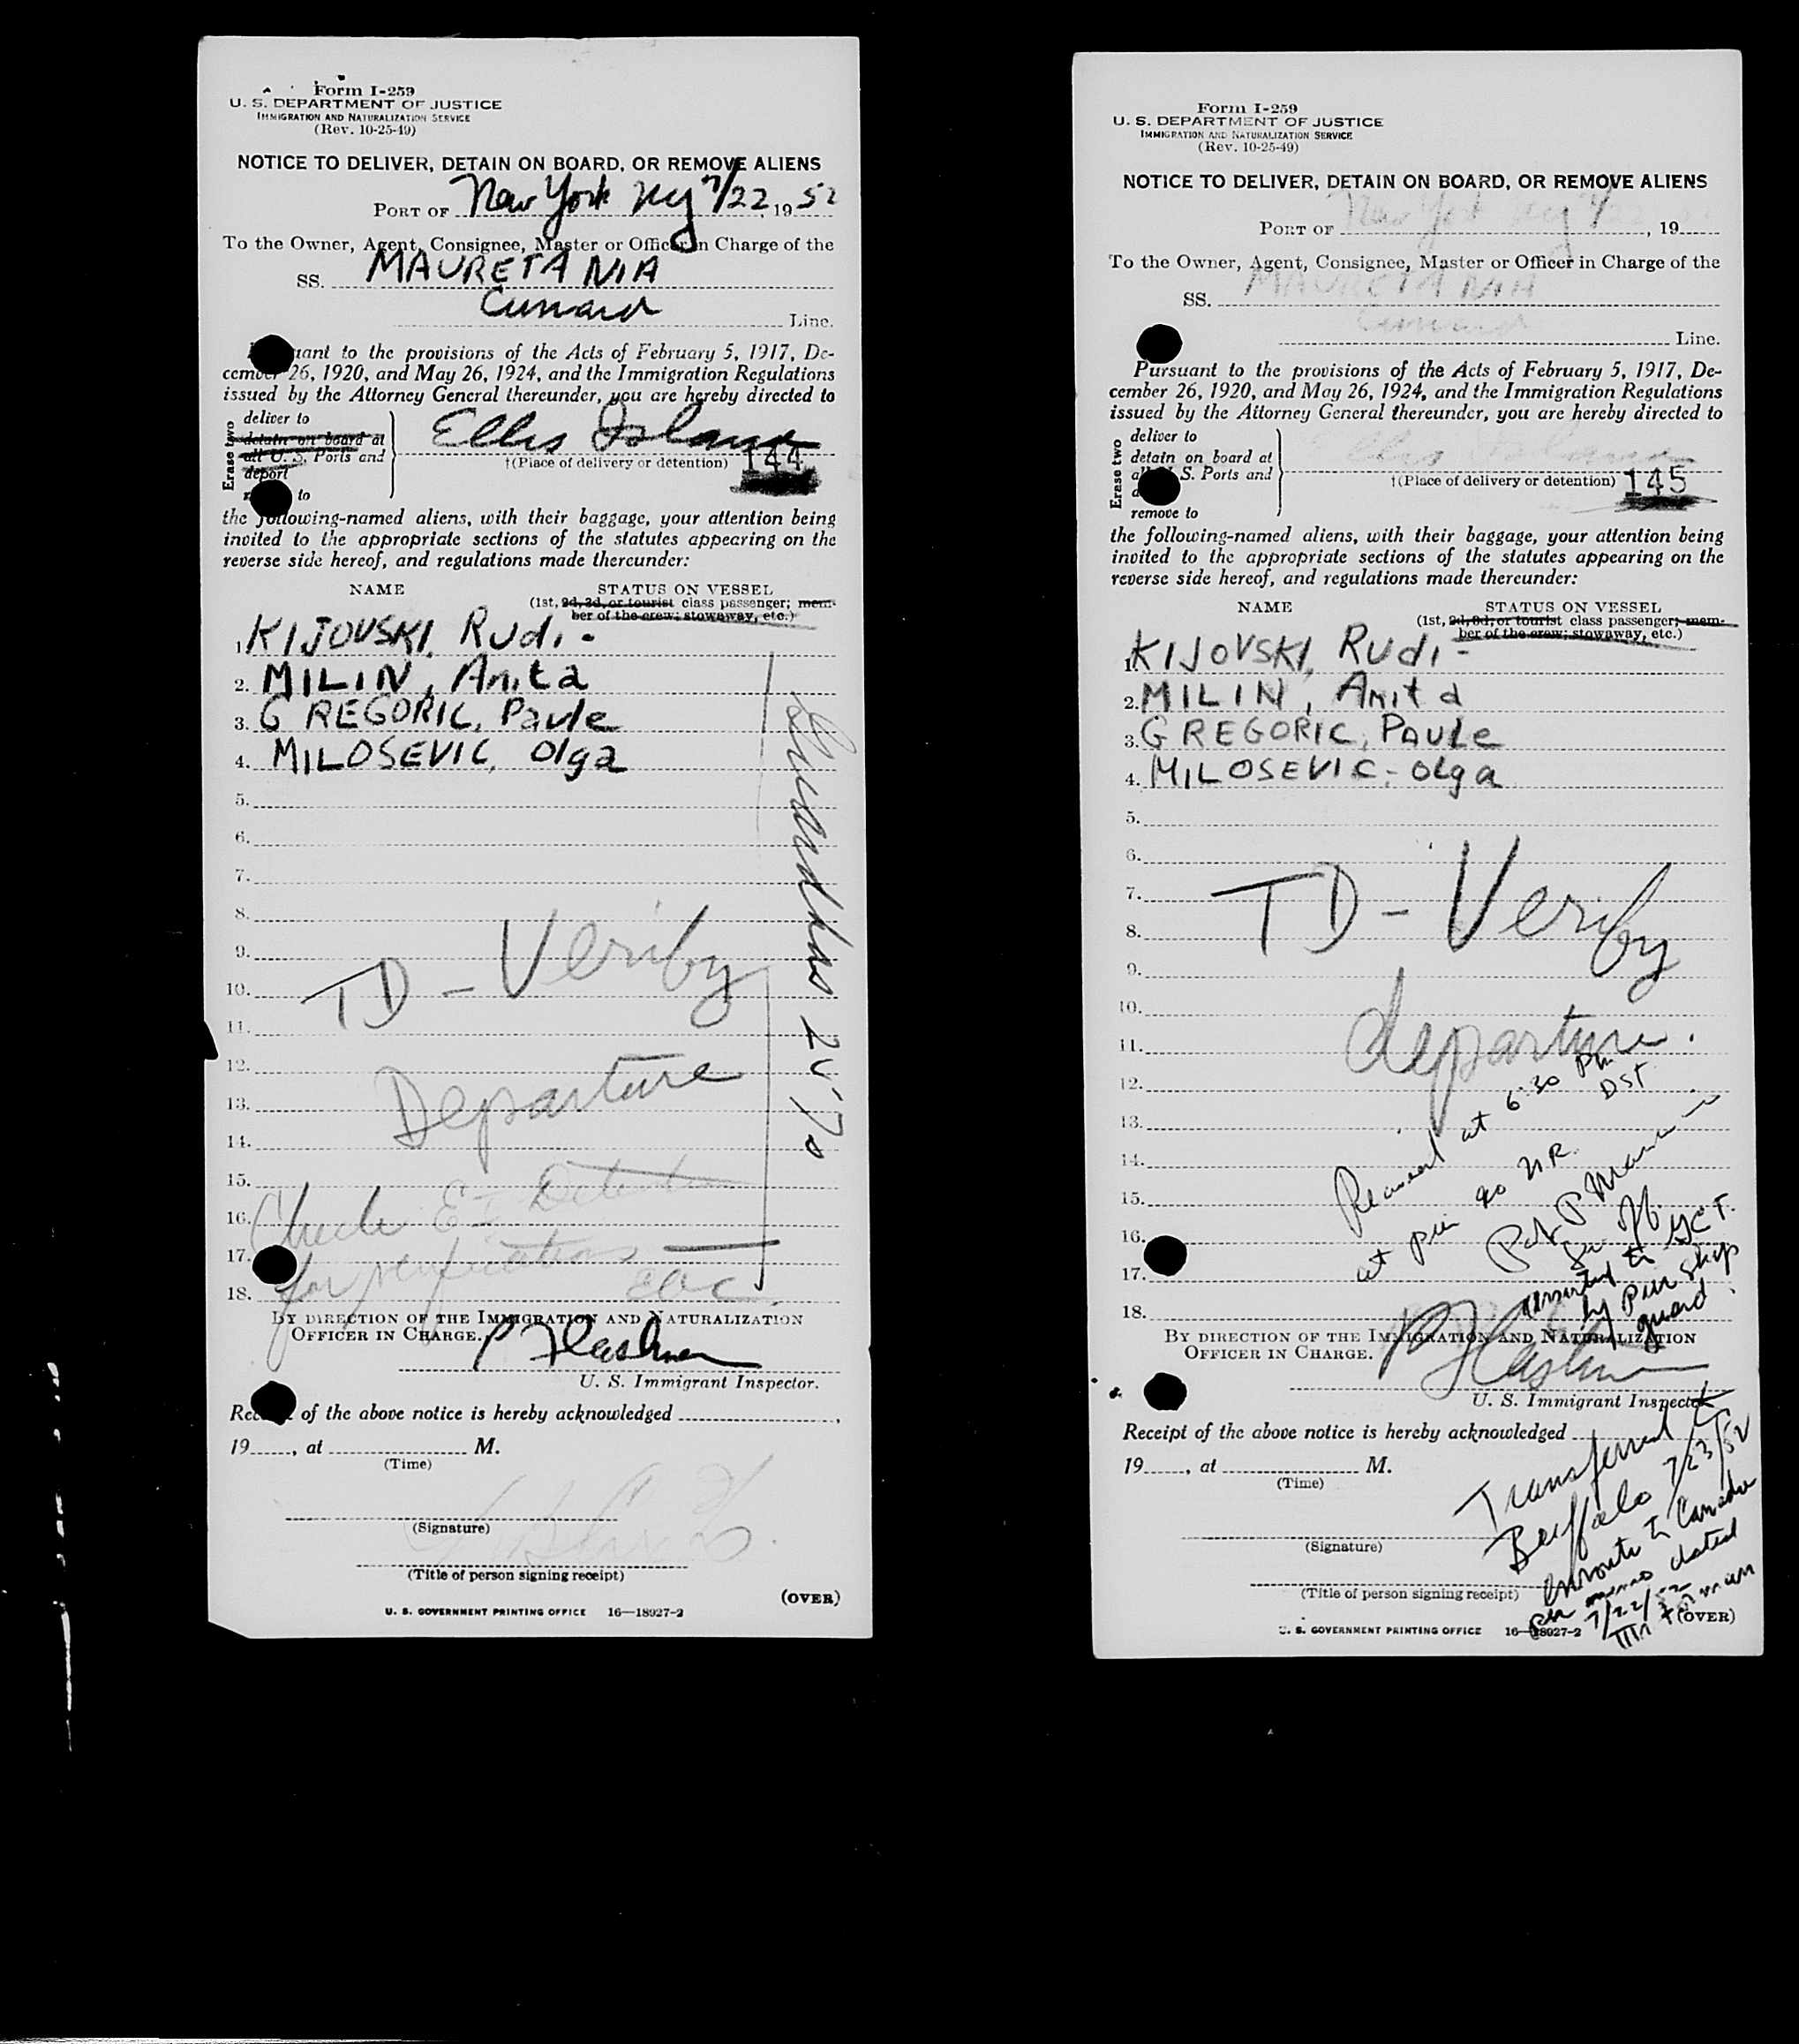 Form I-259
U. S. DEPARTMENT OF JUSTICE
IMMIGRATION AND NATURALIZATION SERVICE
(Rev. 10-25-49)
NOTICE TO DELIVER, DETAIN ON BOARD, OR REMOVE ALIENS
PORT OF New York NY 7/22, 1952
To the Owner, Agent, Consignee, Master or Officer in Charge of the
SS. MAURETANIA
Cunard Line.
uant to the provisions of the Acts of February 5, 1917, De-
cember 26, 1920, and May 26, 1924, and the Immigration Regulations
issued by the Attorney General thereunder, you are hereby directed to
Erase two
deliver to
detain on board at
all U. S. Ports and
deport
to
Ellis Island
†(Place of delivery or detention) 144
the following-named aliens, with their baggage, your attention being
invited to the appropriate sections of the statutes appearing on the
reverse side hereof, and regulations made thereunder:
NAME STATUS ON VESSEL
(1st, 2d, 3d, or tourist class passenger; mem-
ber of the crew; stowaway, etc.)
1. KIJOVSKI, Rudi -
2. MILIN, Anita
3. GREGORIC, Paule
4. MILOSEVIC, Olga
5.
6.
7.
8.
9.
10.
11.
12.
13.
14.
15.
16.
17.
18.
TD - Verify
Departure
Check EI
for verification
BY DIRECTION OF THE IMMIGRATION AND NATURALIZATION
OFFICER IN CHARGE.
P Flashner
U. S. Immigrant Inspector.
of the above notice is hereby acknowledged
19, at M.
(Time)
(Signature)
(Title of person signing receipt)
(OVER)
U. S. GOVERNMENT PRINTING OFFICE 16—18927-2
Form I-259
U. S. DEPARTMENT OF JUSTICE
IMMIGRATION AND NATURALIZATION SERVICE
(Rev. 10-25-49)
NOTICE TO DELIVER, DETAIN ON BOARD, OR REMOVE ALIENS
PORT OF New York NY 7/22, 19
To the Owner, Agent, Consignee, Master or Officer in Charge of the
SS. MAURETANIA
Cunard Line.
Pursuant to the provisions of the Acts of February 5, 1917, De-
cember 26, 1920, and May 26, 1924, and the Immigration Regulations
issued by the Attorney General thereunder, you are hereby directed to
Erase two
deliver to
detain on board at
S. Ports and
remove to
Ellis Island
†(Place of delivery or detention) 145
the following-named aliens, with their baggage, your attention being
invited to the appropriate sections of the statutes appearing on the
reverse side hereof, and regulations made thereunder:
NAME STATUS ON VESSEL
(1st, 2d, 3d, or tourist class passenger; mem-
ber of the crew; stowaway, etc.)
1. KIJOVSKI, Rudi -
2. MILIN, Anita
3. GREGORIC, Paule
4. MILOSEVIC - Olga
5.
6.
7.
8.
9.
10.
11.
12.
13.
14.
15.
16.
17.
18.
TD - Verify
departure.
Received at 6:30 PM
DST
at pier 90 N.R.
to GCT.
by Pier ship
guard.
BY DIRECTION OF THE IMMIGRATION AND NATURALIZATION
OFFICER IN CHARGE.
P Flashner
U. S. Immigrant Inspector
Receipt of the above notice is hereby acknowledged
19, at M.
(Time)
(Signature)
(Title of person signing receipt)
Transferred to
Buffalo 7/23/52
enroute to Canada
per memo dated
7/22/52
(OVER)
U. S. GOVERNMENT PRINTING OFFICE 16—18927-2